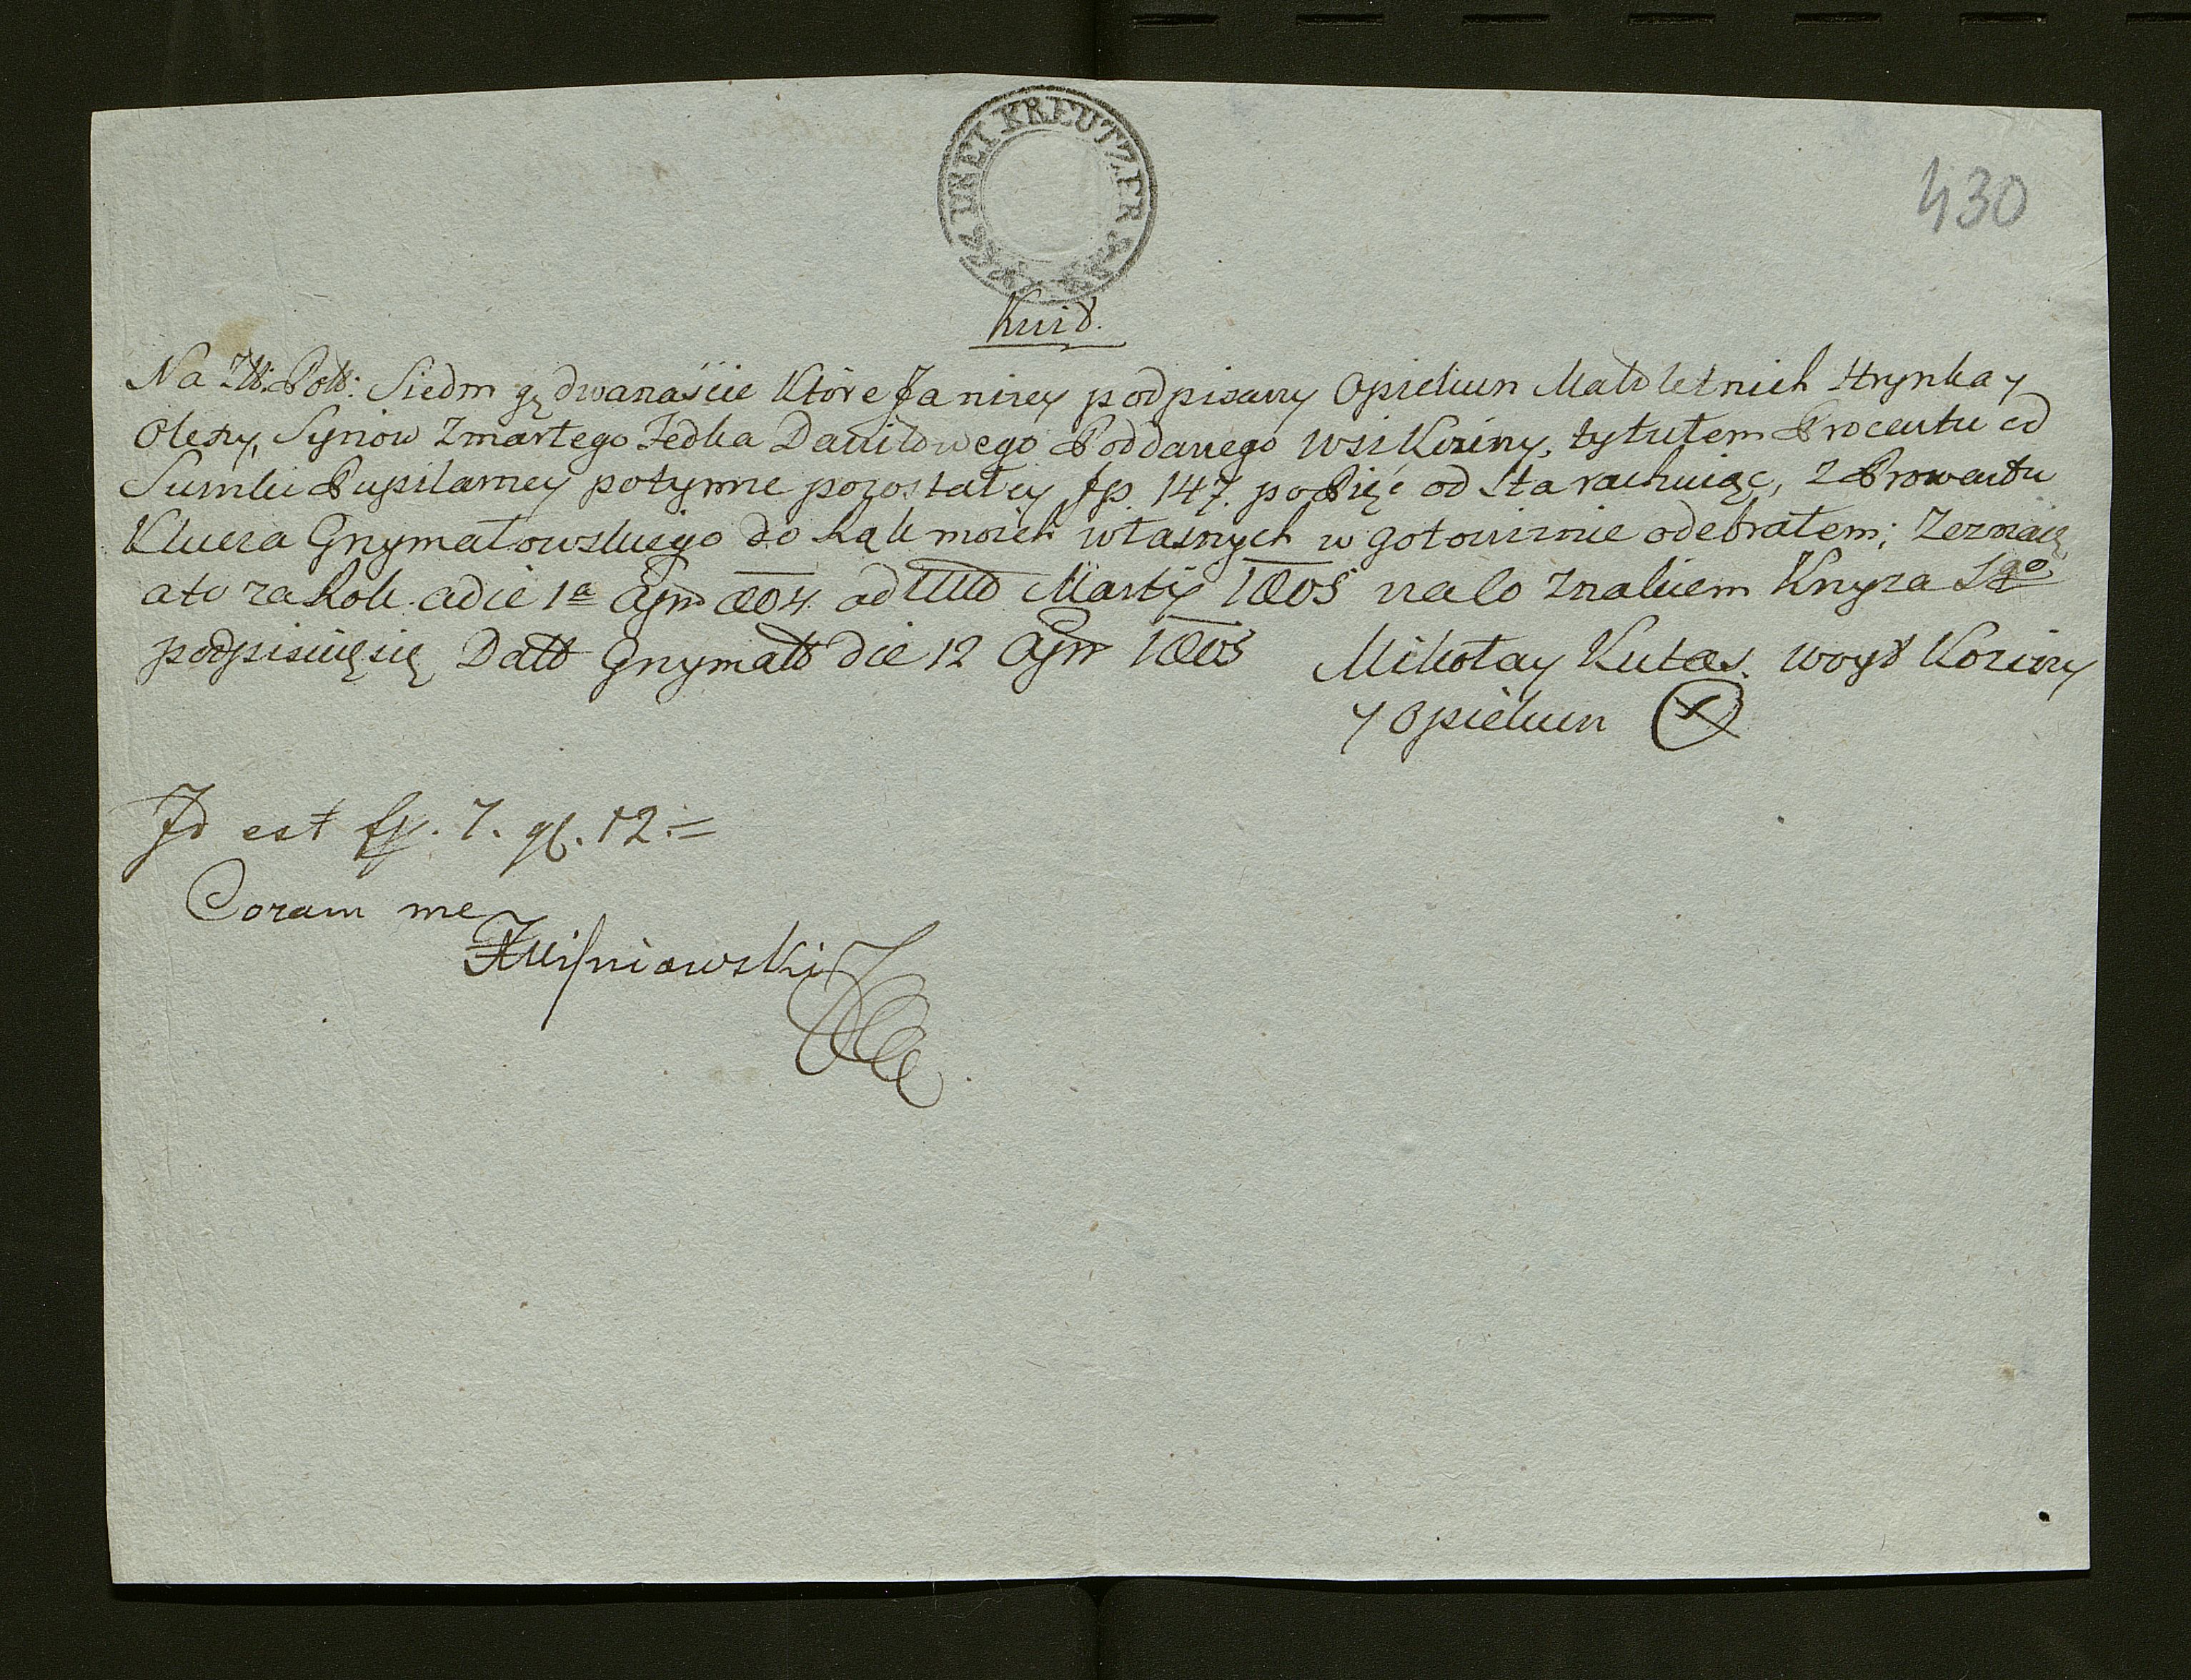 DREI KREUTZER
430
Kwit.
Na Złł: Poll: Siedm gę dwanaście które Ja niżey podpisany Opiekun Małoletnich Hrynka y
Olexy, Synow Zmarłego Fedka Daniłowego Poddanego wsi Koziny, tytułem Procentu od
Sumki Pupilarney potymże pozostałey fp 147. po Pięć od Sta rachuiąc, z Prowentu
Klucza Grzymałowskiego do Rąk moich własnych w gotowiznie odebrałem; Zeznaię
a to za Rok a die 1a Apr 804 ad ultima Martij 1805 na co Znakiem Krzyża Sgo
podpisuię się Datt Grzymałł die 12 Apr 1805 Mikołay Kutas woyt Koziny
y Opiekun
Id est fp. 7. gl. 12.=
Coram me
Wiśniowski